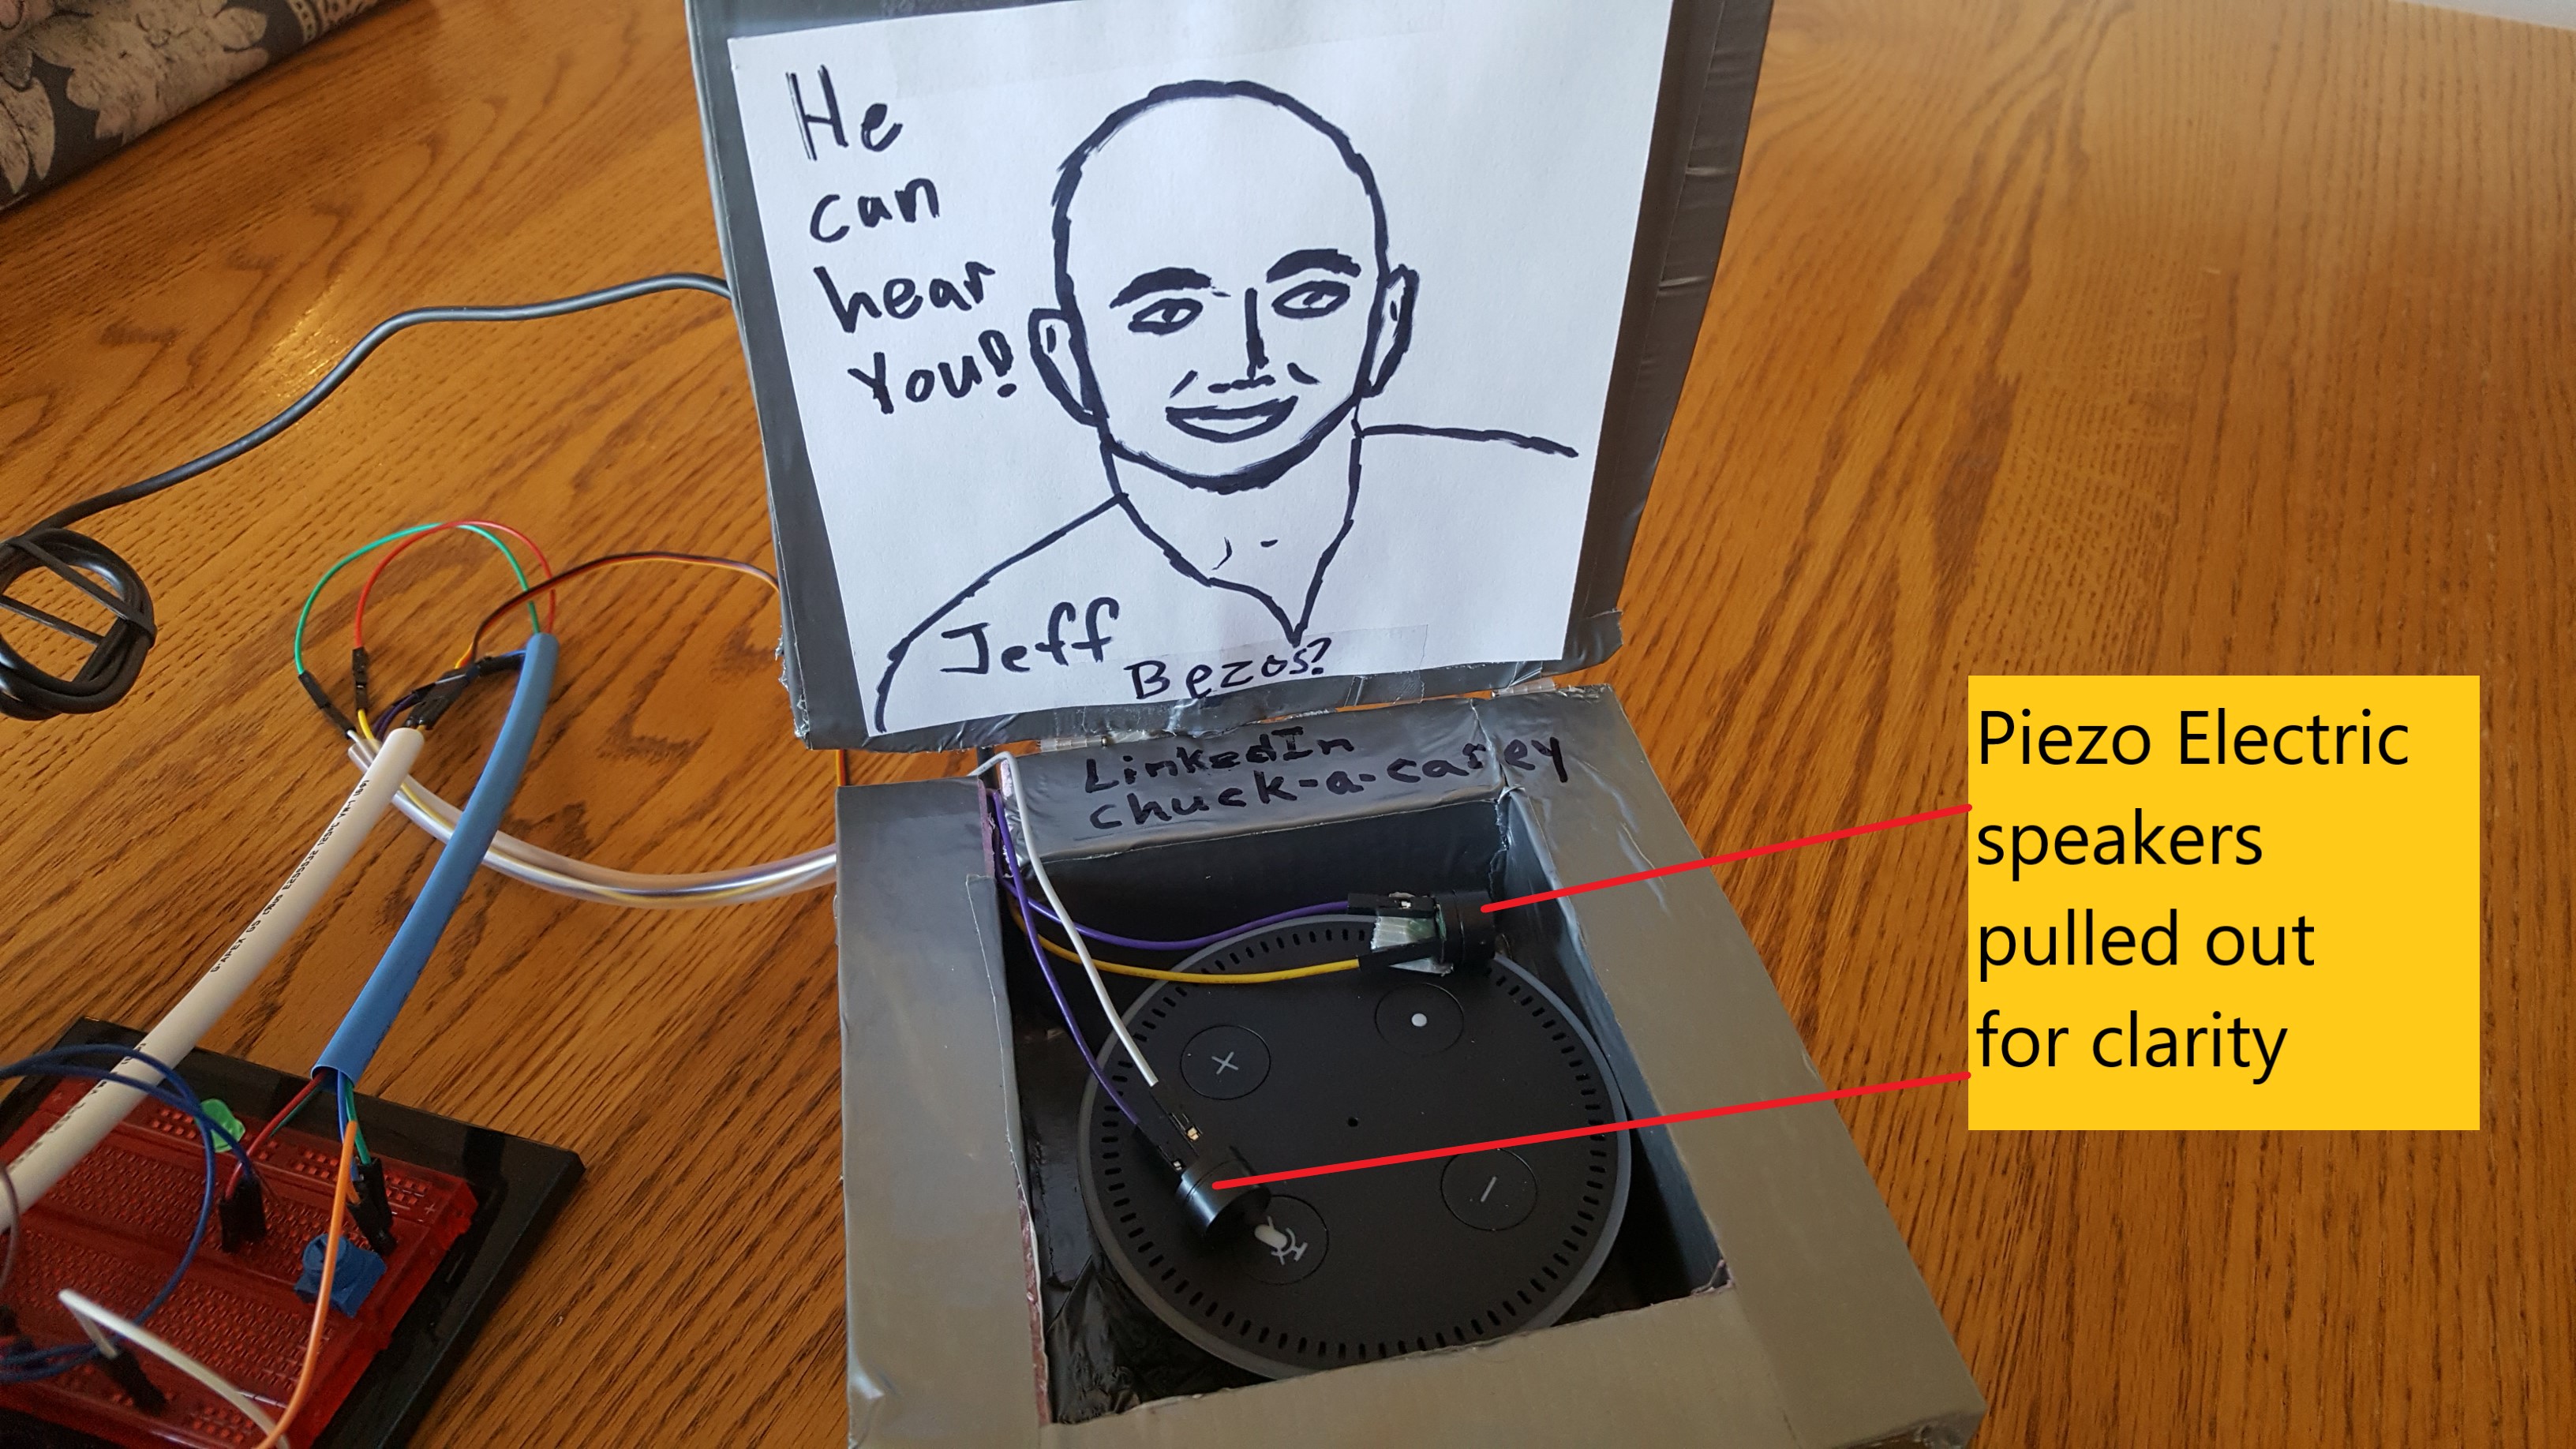 He
can
hear
You!
Jeff
Bezos?
LinkedIn
chuck-a-carey
Piezo Electric
speakers
pulled out
for clarity